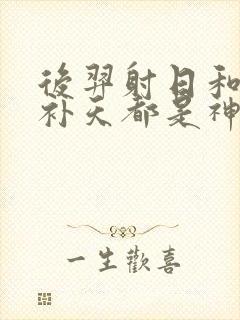 後羿射日和
补天都是神
一生歡喜